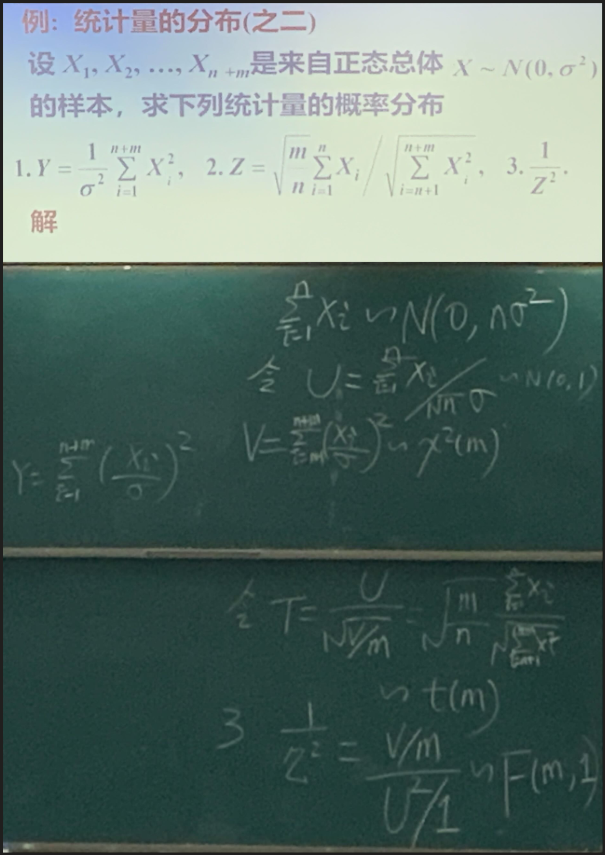 例：统计量的分布(之二)
设 X₁, X₂, …, Xₙ₊ₘ是来自正态总体 X ~ N(0, σ²)
的样本，求下列统计量的概率分布
1. Y = 1/σ² ∑_{i=1}^{n+m} X_i², 2. Z = √(m/n) ∑_{i=1}^{n} X_i / √(∑_{i=n+1}^{n+m} X_i²), 3. 1/Z².
解
∑_{i=1}^{n} X_i ~ N(0, nσ²)
令 U = ∑_{i=1}^{n} X_i / √n σ ~ N(0,1)
V = ∑_{i=m}^{n+m} (X_i/σ)² ~ χ²(m)
Y = ∑_{i=1}^{n+m} (X_i/σ)²
令 T = U/√(V/m) = √(m/n) ∑ X_i / √(∑_{i=n+1} X_i²)
~ t(m)
3 1/Z² = (V/m)/(U²/1) ~ F(m,1)